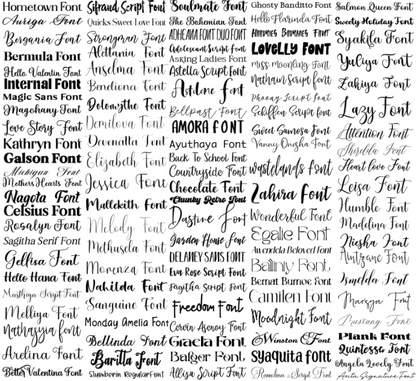 Hometown Font
Auriga Font
Bergania Font
Bermula Font
Hello Valentin Font
Internal Font
Magic Sans Font
Magohany Font
Love Story Font
Kathryn Font
Galson Font
Michigan Font
Mothers Hearts Font
Nagota Font
Celsius Font
Rosalyn Font
Sagitha Serif Font
Gellisa Font
Hello Hana Font
Script Font
Melliya Font
Nathasyia Font
Arelina Font
Bettes Valentina Font
Sifrand Script Font
Quicks Sweet Love Font
Strongman Font
Aldtania Font
Anselma Font
Bendiona Font
Delonzthe Font
Demilova Font
Davenatta Font
Elizabeth Font
Jessica Font
Mallekith Font
Melody Font
Methusela Font
Morenza Font
Nahkilda Font
Sanguine Font
Monday Amelia Font
Bellinda Font
Baritta Font
Slowborn RegularFont
Soulmate Font
The Bohemian Font
ADHEAMA FONT DUO FONT
Adolescent Script Font
Asking Ladies Font
Astella Script Font
Addne Font
Bellpast Font
AMORA FONT
Ayuthaya Font
Back To School Font
Countryside Font
Chocolate Font
Chunky Retro Font
Dastine Font
Garden House Font
DELANEY SANS FONT
Eva Rose Script Font
Faytha Script Font
Freedom Font
Corvin Agency Font
Gracla Font
Balger Font
Allisa Script Font
Ghosty Banditto Font
Hello Florinda Font
Font
LOVELLY FONT
Miss Moonling Font
Nathasin Script Font
Phoeny Script Font
Schiffley Script font
Sweet Gamosa Font
Font
wastelands Font
Zahira Font
Wonderful Font
Egalie Font
Avenlda Beloved Font
Balliny Font
Bernat Burnoe Font
Camilen Font
Moodnight Font
Winston Font
Syaquita font
Script Font
Salmon Queen Font
Sweety Holiday Font
Syakila Font
Yuliya Font
Zakiya Font
Lazy Font
Attention Font
Shailda Font
Heart love Font
Leisa Font
Humble Font
Madelina Font
Niesha Font
Font
Kinelda Font
Maesya Font
Mustang Font
Plank Font
Quintesse Font
Angela Lovely Font
Signature Font